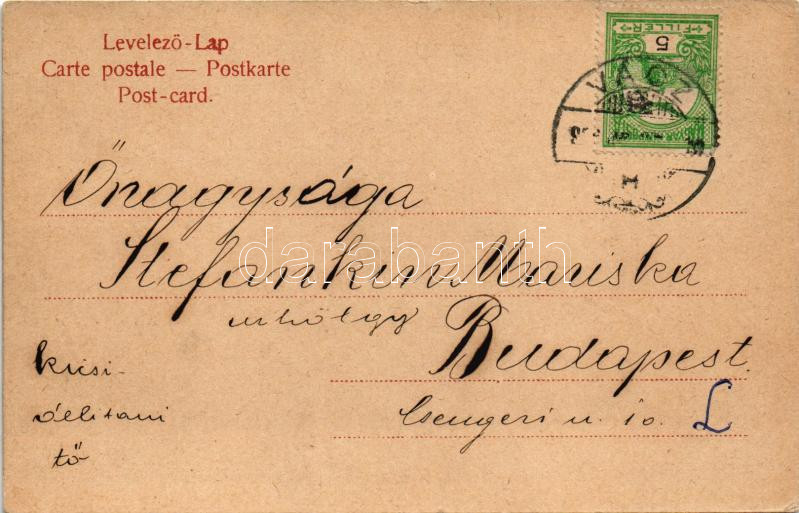 Levelező-Lap
Carte postale — Postkarte
Post-card.
5
FILLER
VÁCZ
Őnagysága
Stefankin Mariska
urhölgy
Budapest
Csengeri u. 10.
L
darabanth